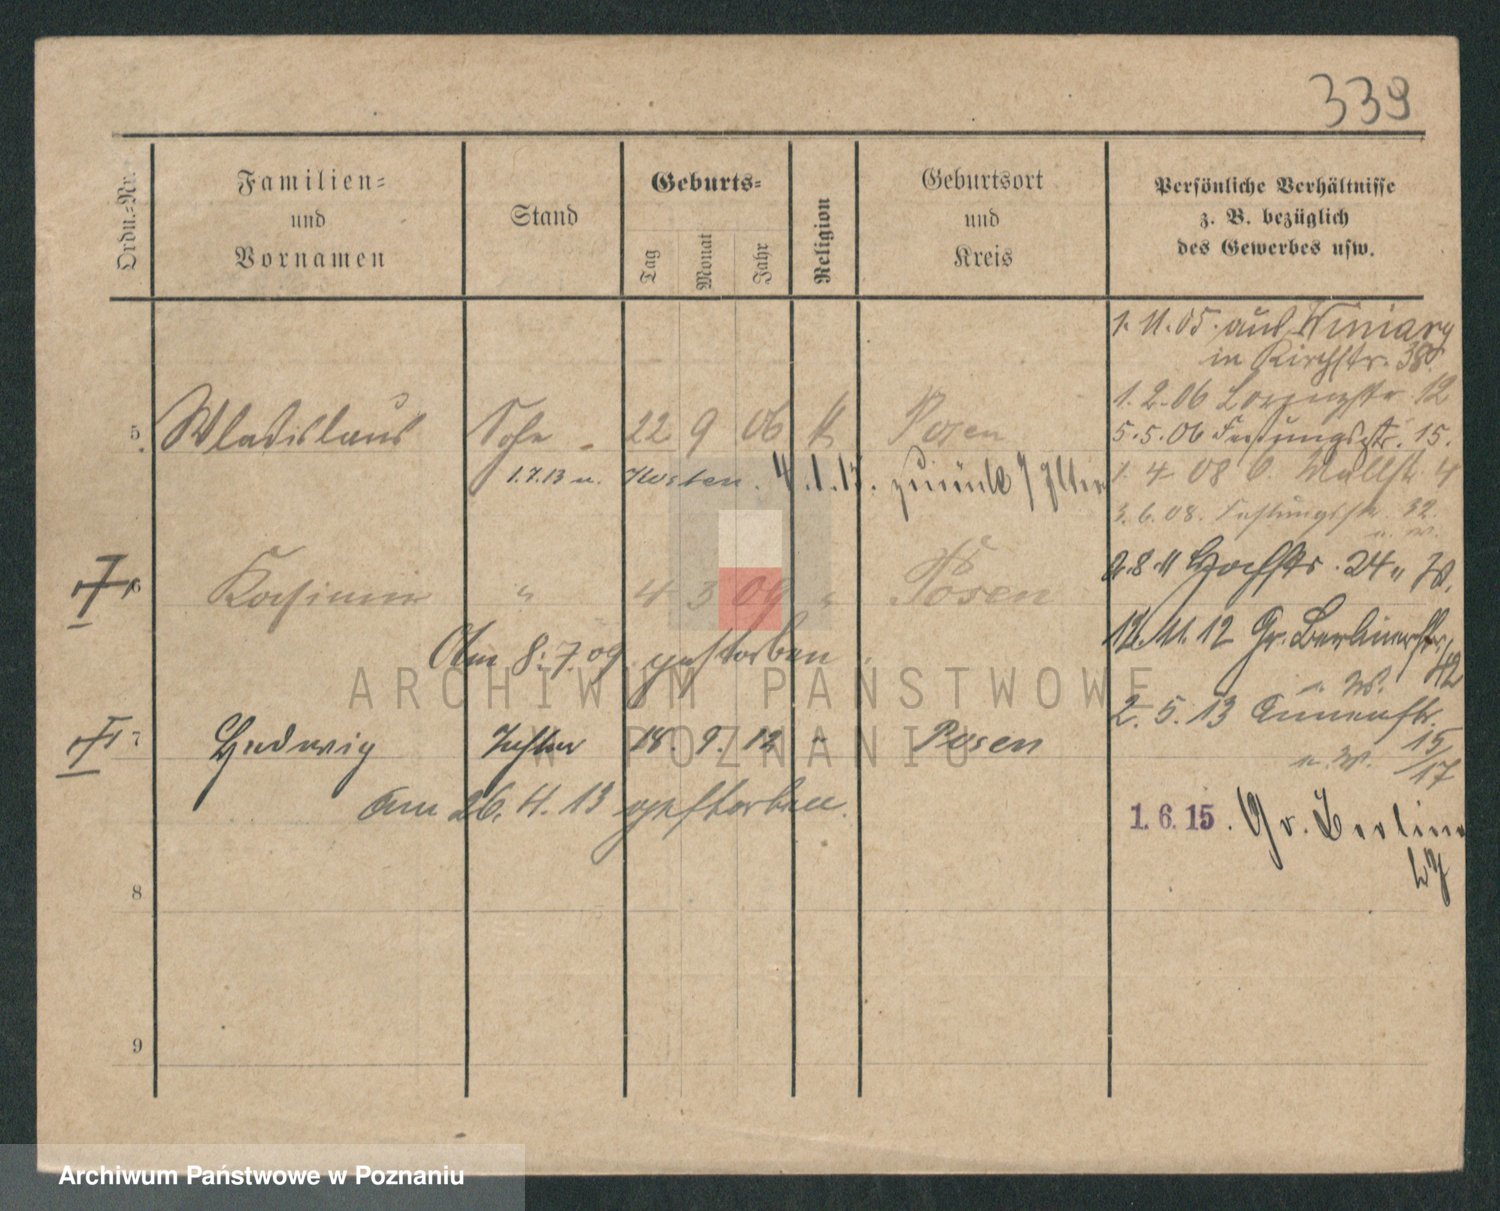 339
Ordn.=Nr.
Familien=
und
Vornamen
Stand
Geburts=
Tag
Monat
Jahr
Religion
Geburtsort
und
Kreis
Persönliche Verhältnisse
z. B. bezüglich
des Gewerbes usw.
1. 11. 05. aus Winiary
in Kirchstr. 38
1. 2. 06 Lorenzstr. 12
5 Wladislaus Sohn 22 9 06 k Posen
5. 5. 06 Festungsstr. 15.
1.7.13 n. Kosten. 4.1.15. zurück z Eltern
1. 4 08 Wallstr. 4
3. 6. 08. Festungsstr. 32.
u. W.
6 Kasimir " 4 3 09 " Posen
2. 8. 11 Hochstr. 24 u. W.
Am 8. 7. 09 gestorben
11. 12 Gr. Berlinerstr. 42
u. W.
2. 5. 13 Annenstr. 15/17
u. W.
7 Hedwig Tochter 18. 9. 12 " Posen
am 26. 4. 13 gestorben.
1. 6. 15. Gr. Berliner
8
9
ARCHIWUM PAŃSTWOWE
W POZNANIU
Archiwum Państwowe w Poznaniu